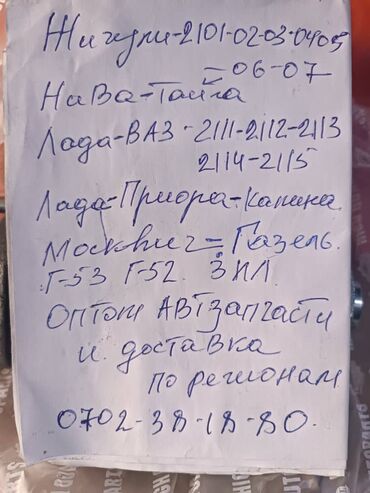 Жигули-2101-02-03-0405
-06-07
НиВа-Тайга
Лада-ВАЗ-2111-2112-2113
2114-2115
Лада-Приора-Калина.
Москвич=Газель.
Г-53 Г-52. ЗИЛ.
Оптом АВТзапчасти
и доставка
по регионам
0702-38-18-80.